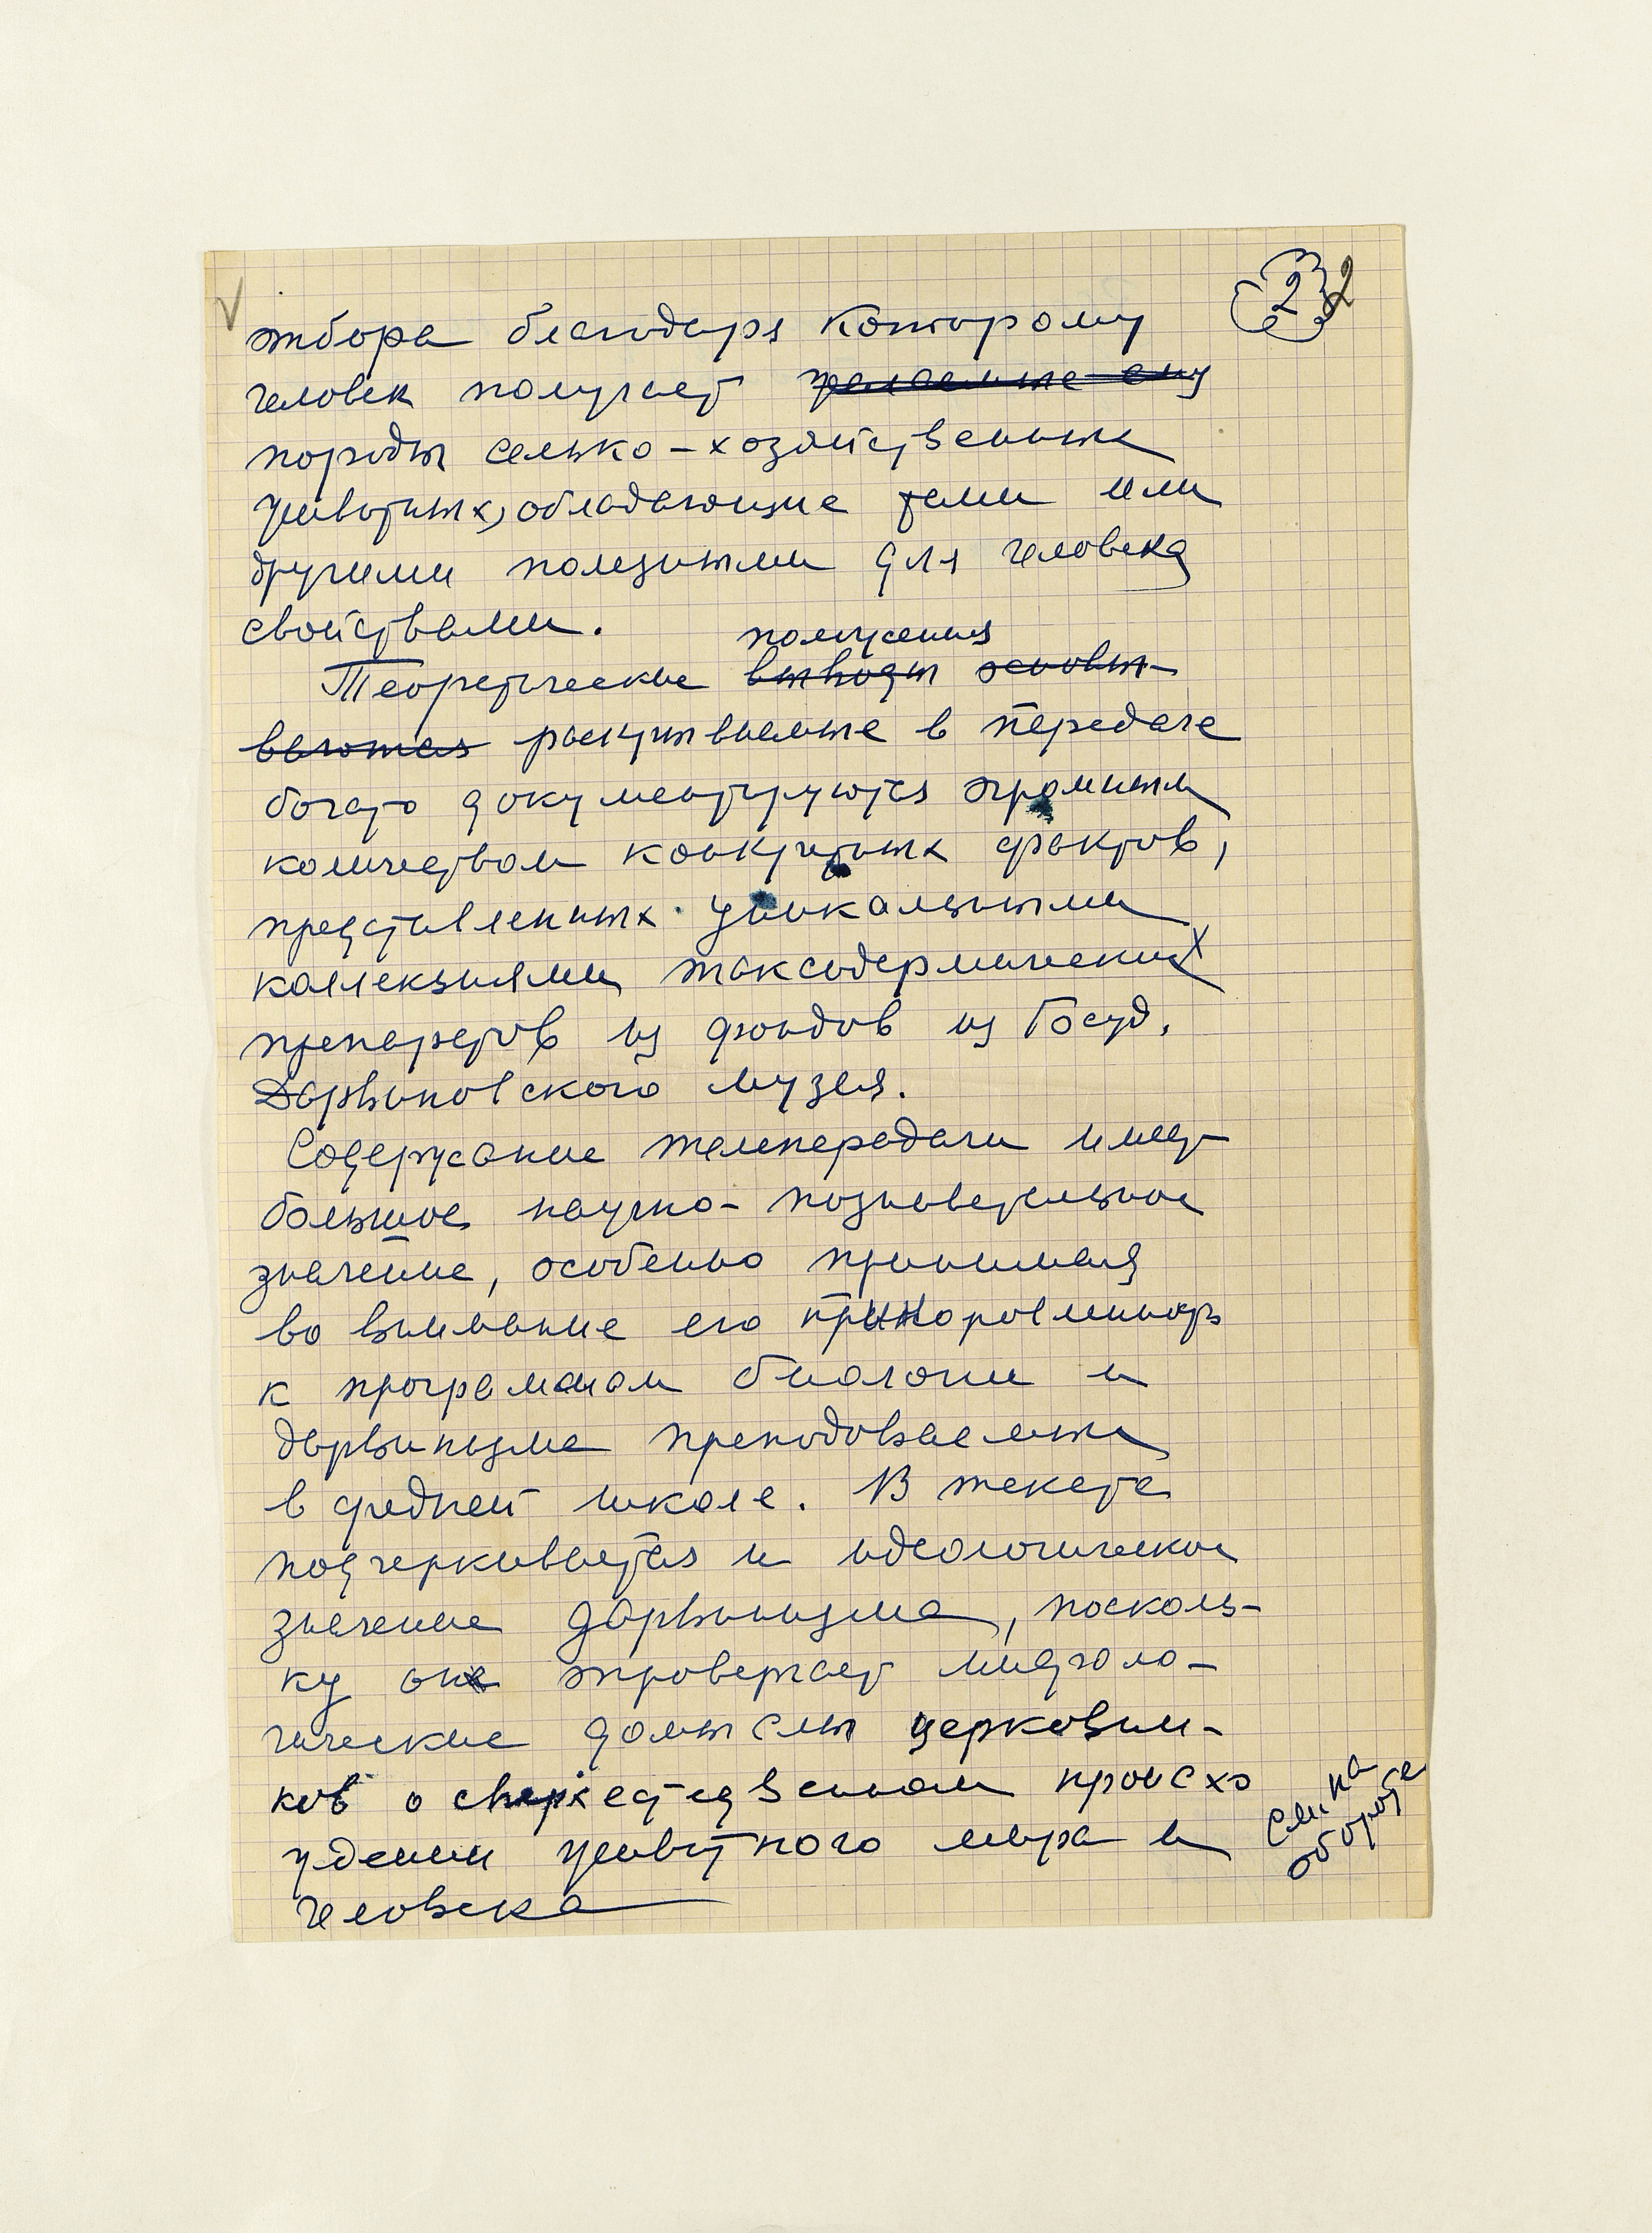 2 2
отбора благодаря которому
человек получает желаемые ему
породы селько-хозяйственных
животных, обладающие теми или
другими полезными для человека
свойствами.
положения
Теоретические выводы основы-
ваются раскрываемые в передаче
богато документируются огромным
количеством конкретных фактов,
представленных уникальными
коллекциями таксодермических
препаратов из фондов из Госуд.
Дарвиновского музея.
Содержание телепередачи имеет
большое научно-познавательное
значение, особенно принимая
во внимание его
к программам биологии и
дарвинизма преподаваемых
в средней школе. В тексте
подчеркивается и идеологическое
значение дарвинизма, посколь-
ку он опровергает мифоло-
гические домыслы церковни-
ков о сверхестественном происхо
ждении животного мира и
человека
см. на
обороте